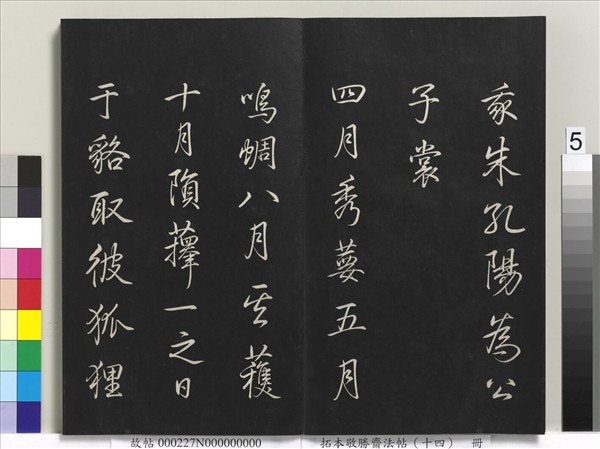 我朱孔陽為公
子裳
四月秀葽五月
鳴蜩八月其穫
十月隕蘀一之日
于貉取彼狐狸
5
故帖 000227N000000000
拓本敬勝齋法帖（十四） 冊